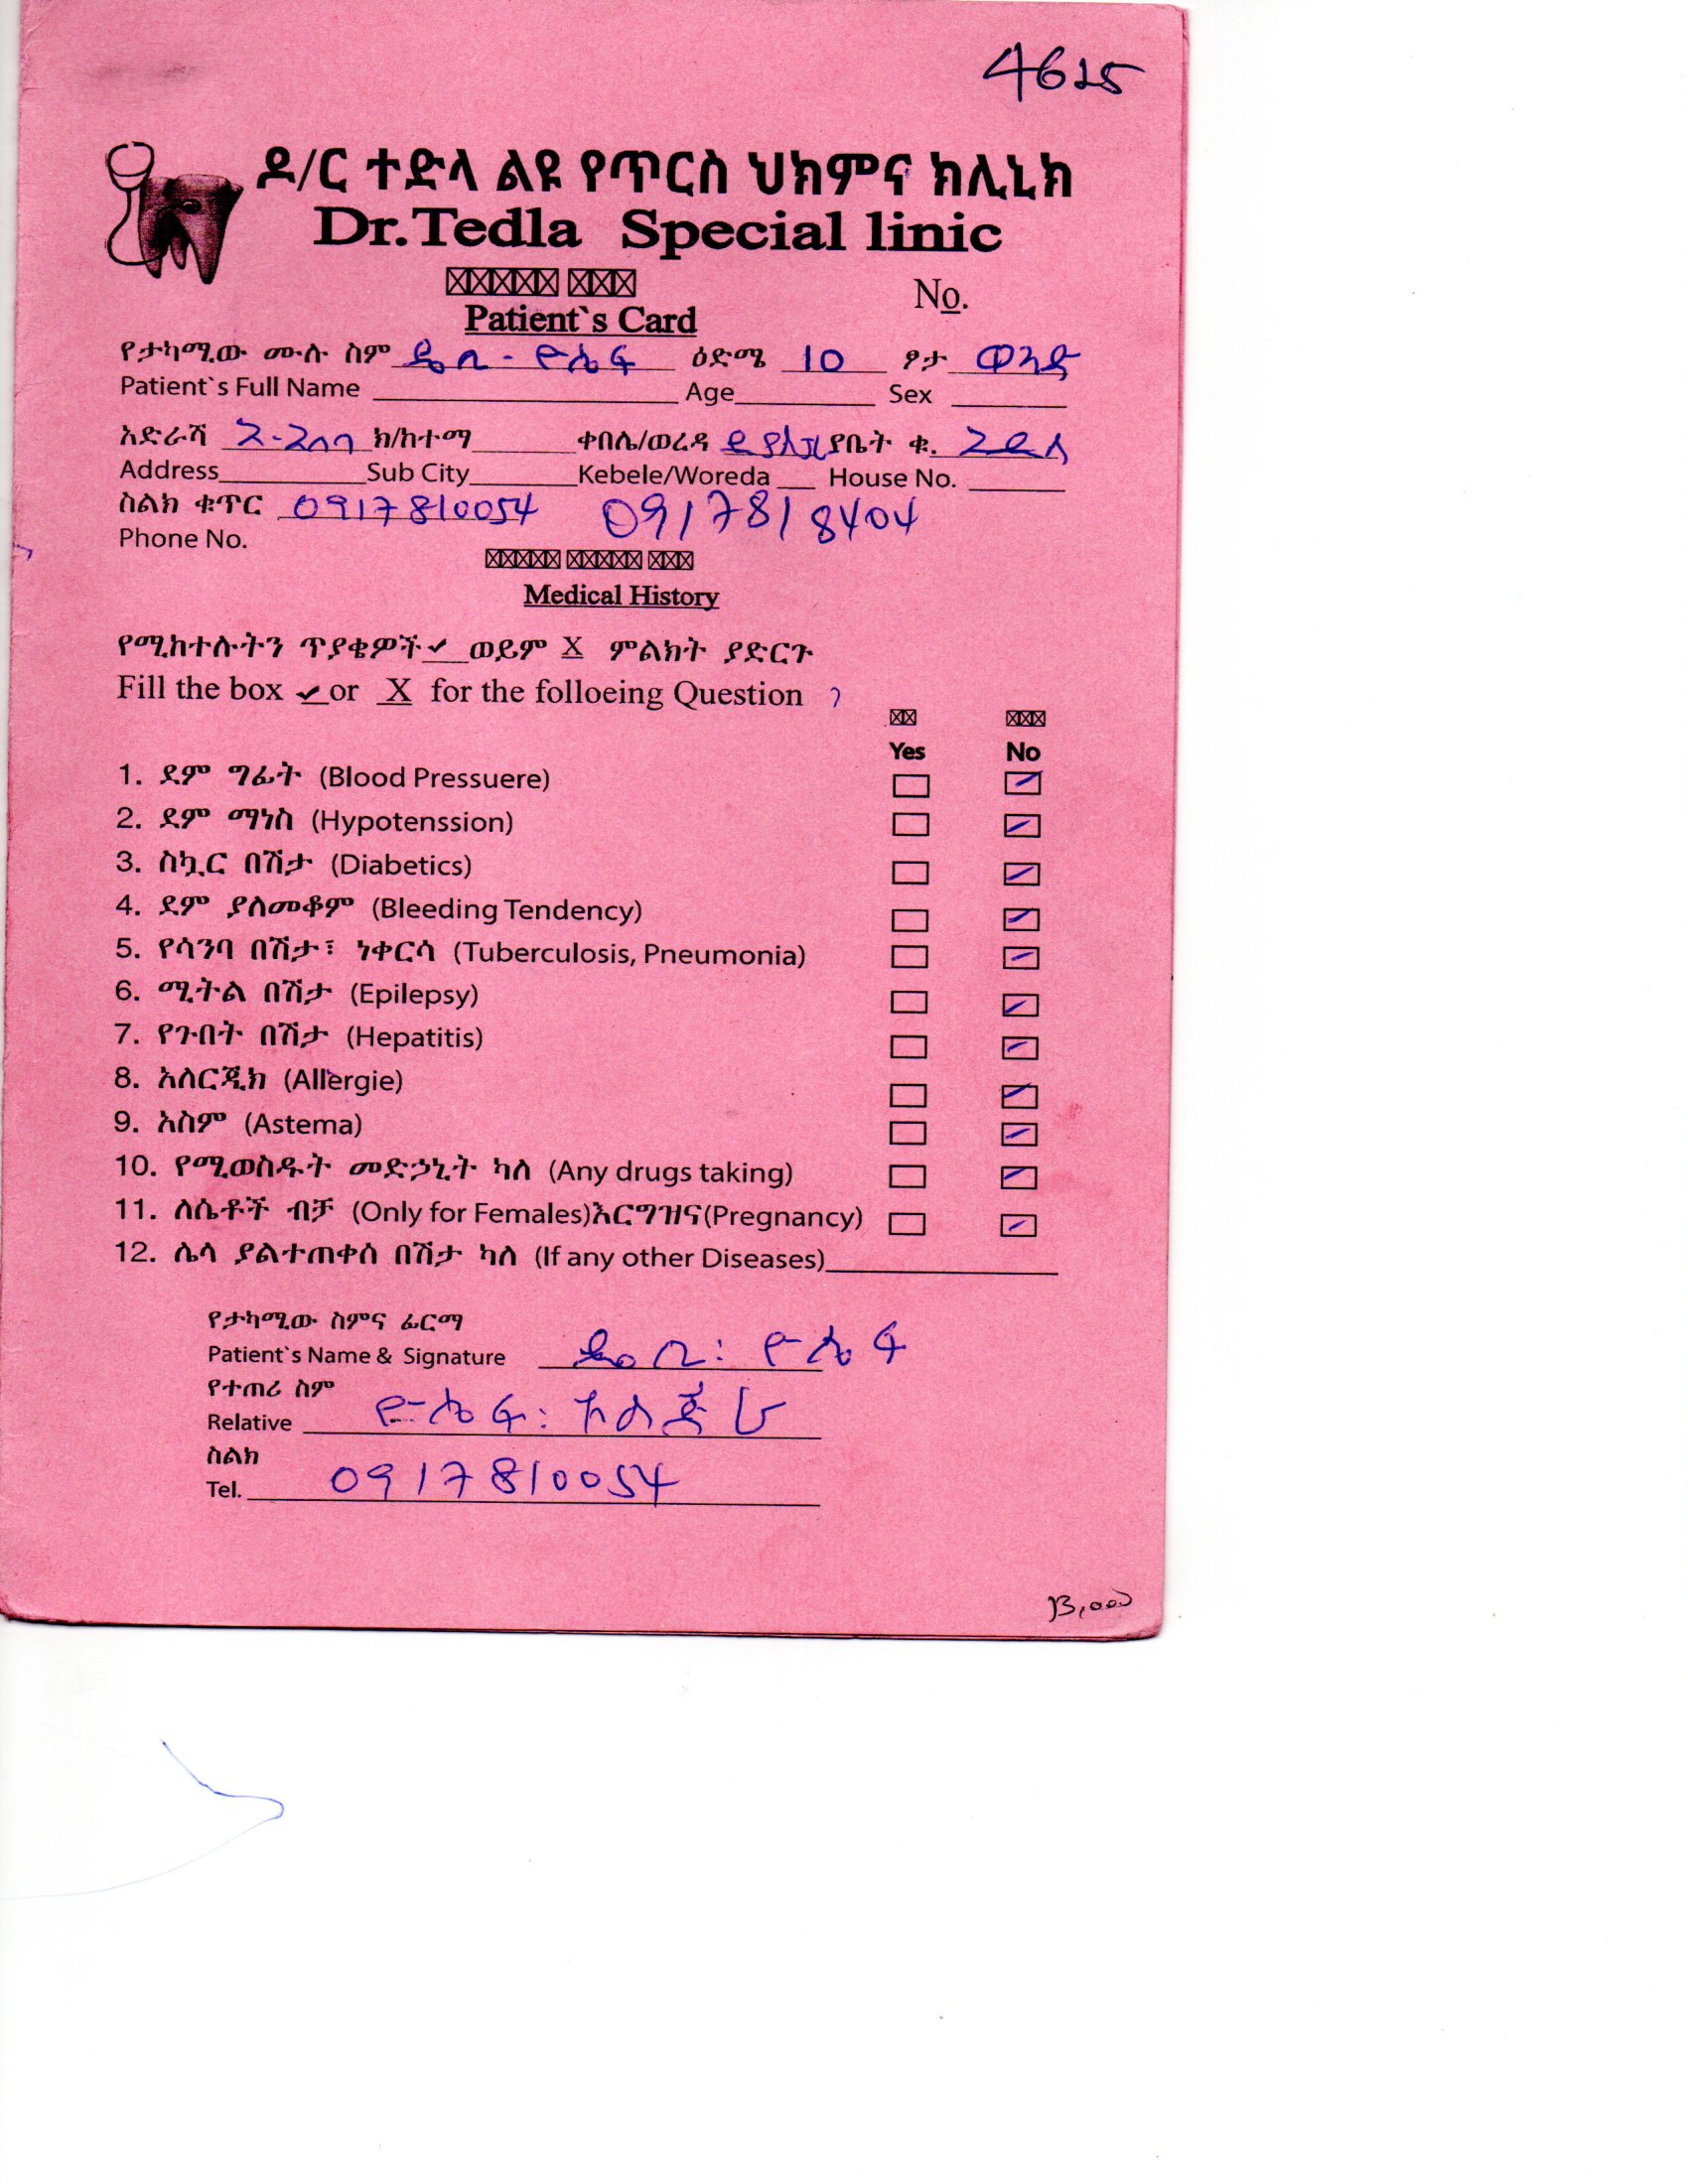 4625
ዶ/ር ተድላ ልዩ የጥርስ ህክምና ክሊኒክ
Dr.Tedla Special linic
No.
Patient`s Card
የታካሚው ሙሉ ስም ዮሴፍ ዕድሜ 10 ፆታ ወንድ
Patient`s Full Name Age Sex
አድራሻ ክ/ከተማ ቀበሌ/ወረዳ የቤት ቁ.
Address Sub City Kebele/Woreda House No.
ስልክ ቁጥር 0917810054 0917818404
Phone No.
Medical History
የሚከተሉትን ጥያቄዎች ✓ ወይም X ምልክት ያድርጉ
Fill the box ✓ or X for the folloeing Question
Yes No
1. ደም ግፊት (Blood Pressuere)
2. ደም ማነስ (Hypotenssion)
3. ስኳር በሽታ (Diabetics)
4. ደም ያለመቆም (Bleeding Tendency)
5. የሳንባ በሽታ፣ ነቀርሳ (Tuberculosis, Pneumonia)
6. ሚትል በሽታ (Epilepsy)
7. የጉበት በሽታ (Hepatitis)
8. አለርጂክ (Allergie)
9. አስም (Astema)
10. የሚወስዱት መድኃኒት ካለ (Any drugs taking)
11. ለሴቶች ብቻ (Only for Females)እርግዝና(Pregnancy)
12. ሌላ ያልተጠቀሰ በሽታ ካለ (If any other Diseases)
የታካሚው ስምና ፊርማ
Patient`s Name & Signature ዮሴፍ
የተጠሪ ስም
Relative ዮሴፍ:
ስልክ
Tel. 0917810054
13,000